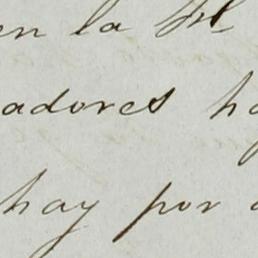 en la
adores ha
hay por